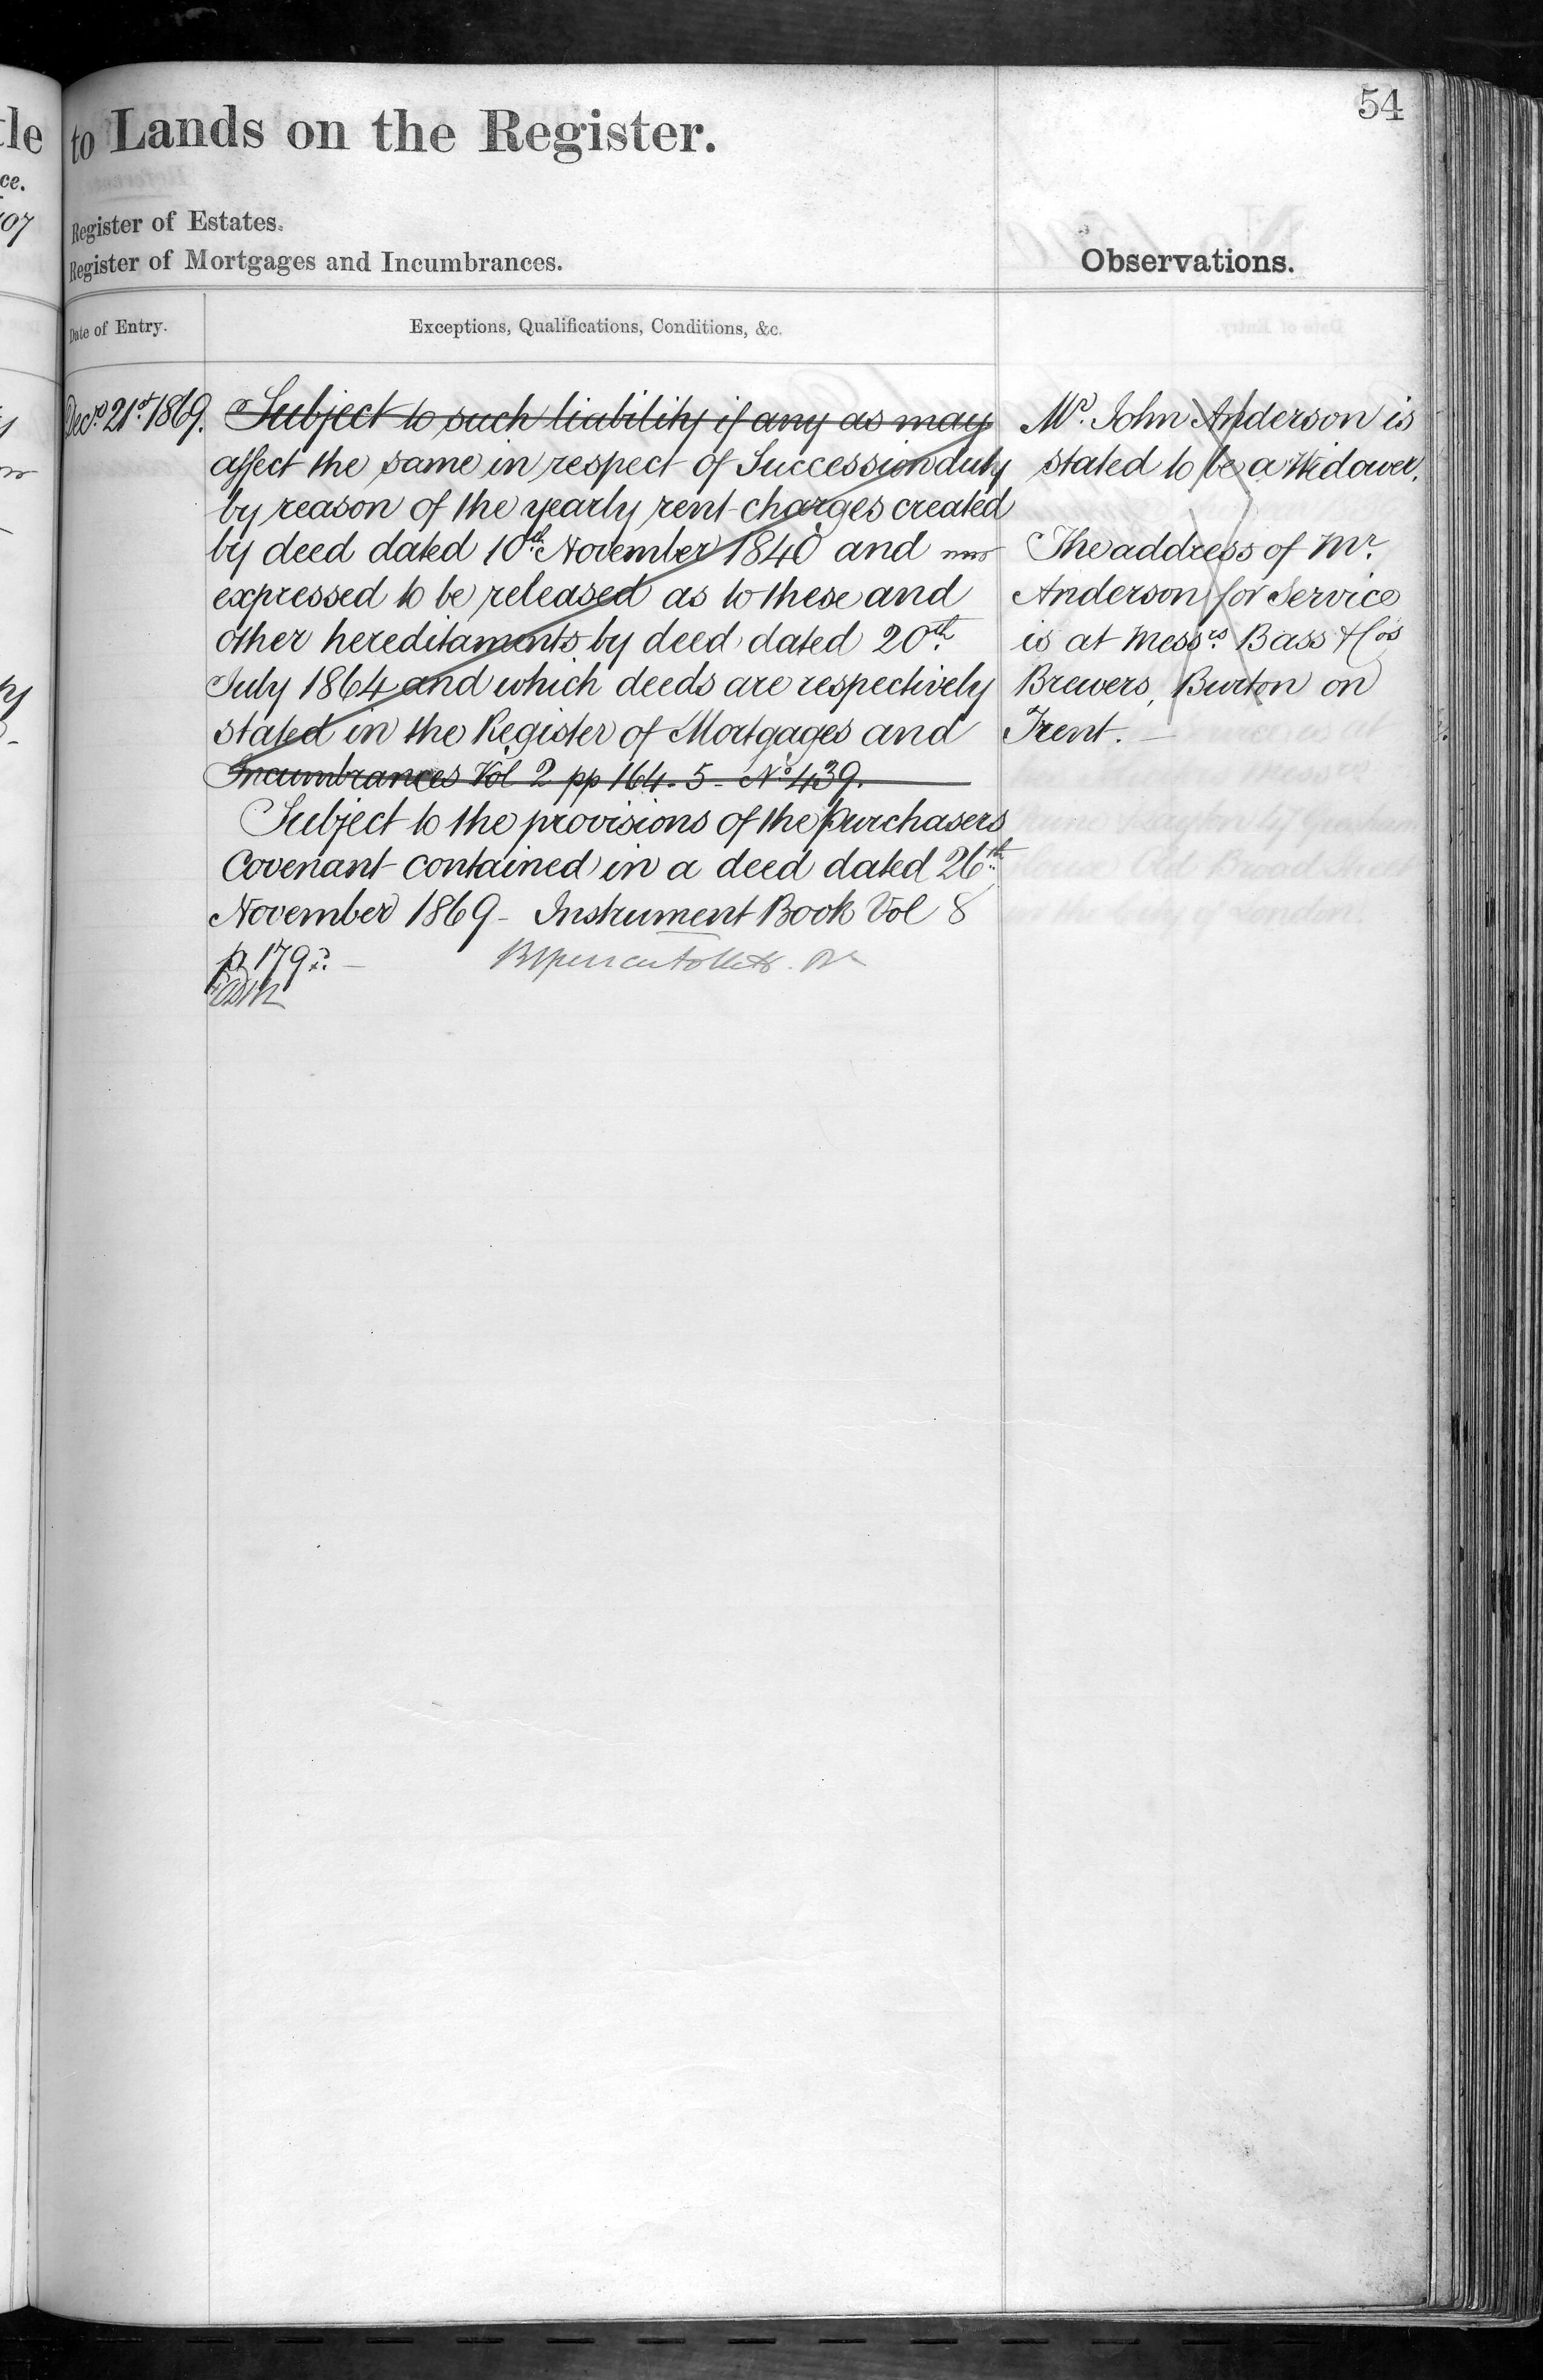 54
tle to Lands on the Register.
ce.
107
Register of Estates.
Register of Mortgages and Incumbrances.
Observations.
Date of Entry.
Exceptions, Qualifications, Conditions, &c.
Decr. 21st. 1869.
Subject to such liability if any as may
affect the same in respect of Succession duty
by reason of the yearly rent charges created
by deed dated 10th. November 1840 and
expressed to be released as to these and
other hereditaments by deed dated 20th.
July 1864 and which deeds are respectively
stated in the Register of Mortgages and
Incumbrances Vol 2 pp 164. 5 - No. 439.
Subject to the provisions of the purchasers
Covenant contained in a deed dated 26th.
November 1869 - Instrument Book Vol 8
p. 179
Mr. John Anderson is
stated to be a Widower.
The address of Mr.
Anderson for Service
is at Messrs. Bass & Cos
Brewers, Burton on
Trent.